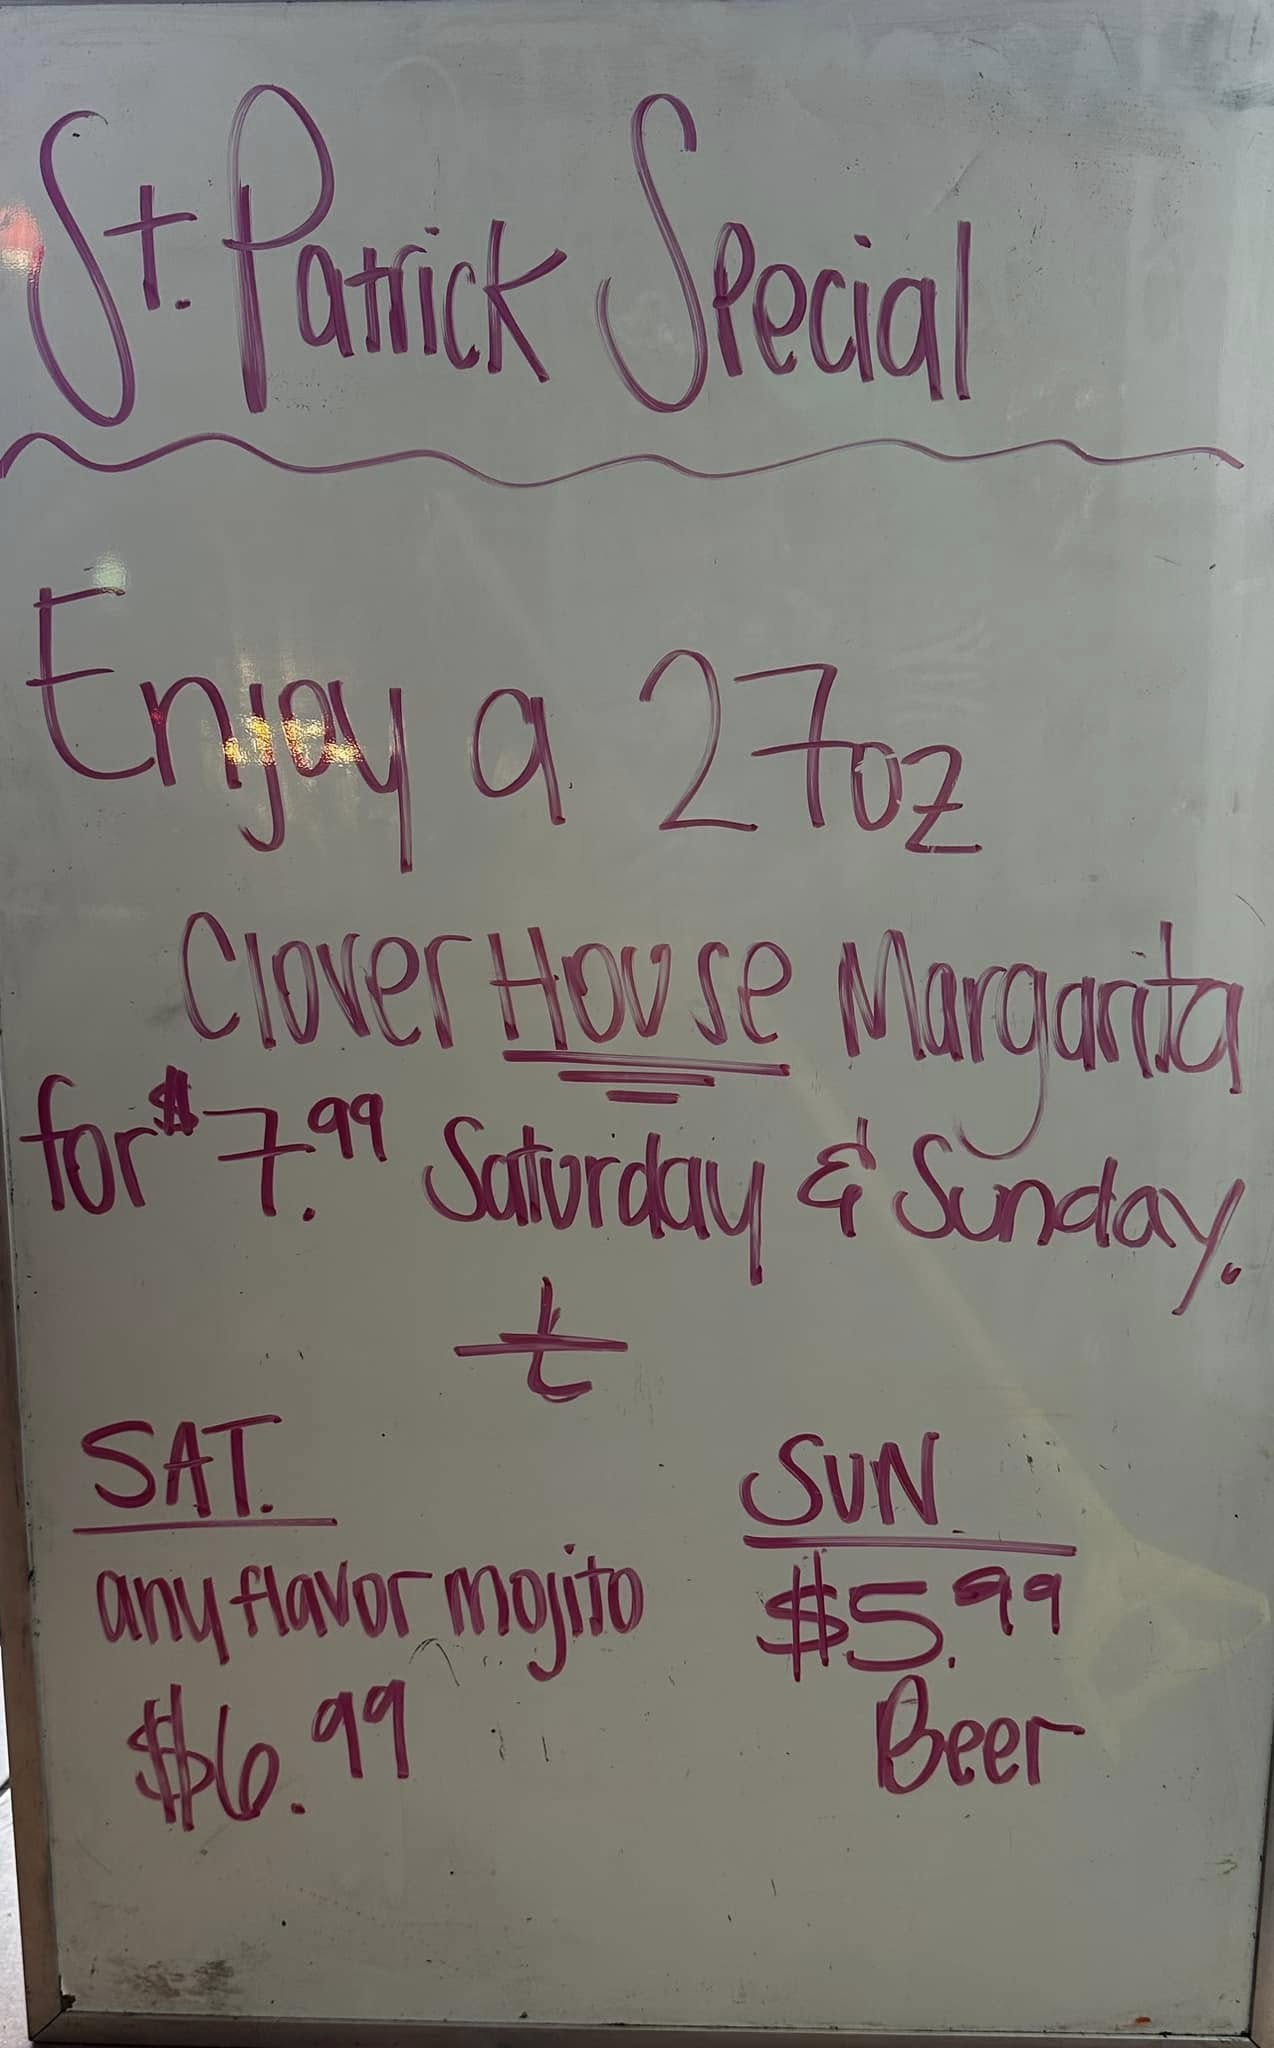 St. Patrick Special
Enjoy a 27oz
Clover House Margarita
for $7.99 Saturday & Sunday.
+
SAT.
any flavor mojito
$6.99
SUN
$5.99
Beer